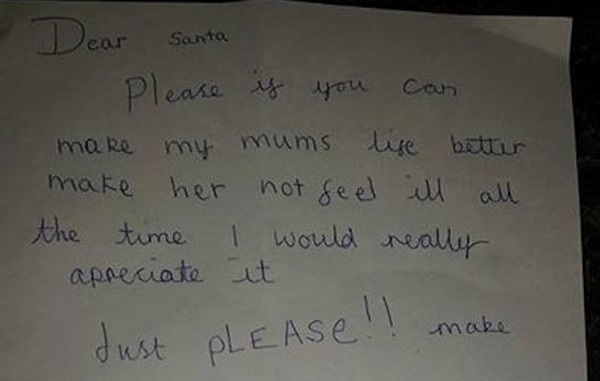 Dear Santa
Please if you can
make my mums life better
make her not feel ill all
the time I would really
apreciate it
Just pLEASe!! make